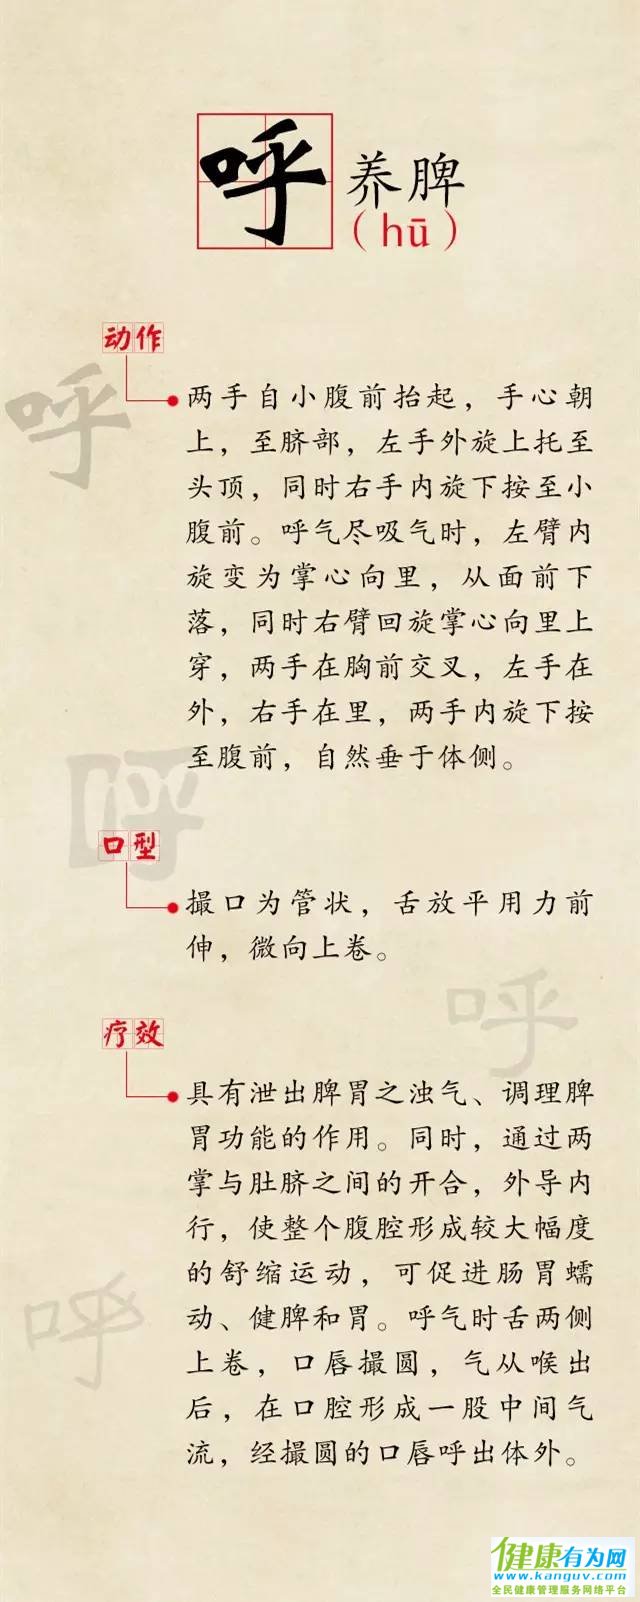 呼 养脾
(hū)
动作
呼
两手自小腹前抬起，手心朝
上，至脐部，左手外旋上托至
头顶，同时右手内旋下按至小
腹前。呼气尽吸气时，左臂内
旋变为掌心向里，从面前下
落，同时右臂回旋掌心向里上
穿，两手在胸前交叉，左手在
外，右手在里，两手内旋下按
至腹前，自然垂于体侧。
呼
口型
撮口为管状，舌放平用力前
伸，微向上卷。
呼
疗效
具有泄出脾胃之浊气、调理脾
胃功能的作用。同时，通过两
掌与肚脐之间的开合，外导内
行，使整个腹腔形成较大幅度
的舒缩运动，可促进肠胃蠕
动、健脾和胃。呼气时舌两侧
上卷，口唇撮圆，气从喉出
后，在口腔形成一股中间气
流，经撮圆的口唇呼出体外。
呼
健康有为网
www.kanguv.com
全民健康管理服务网络平台